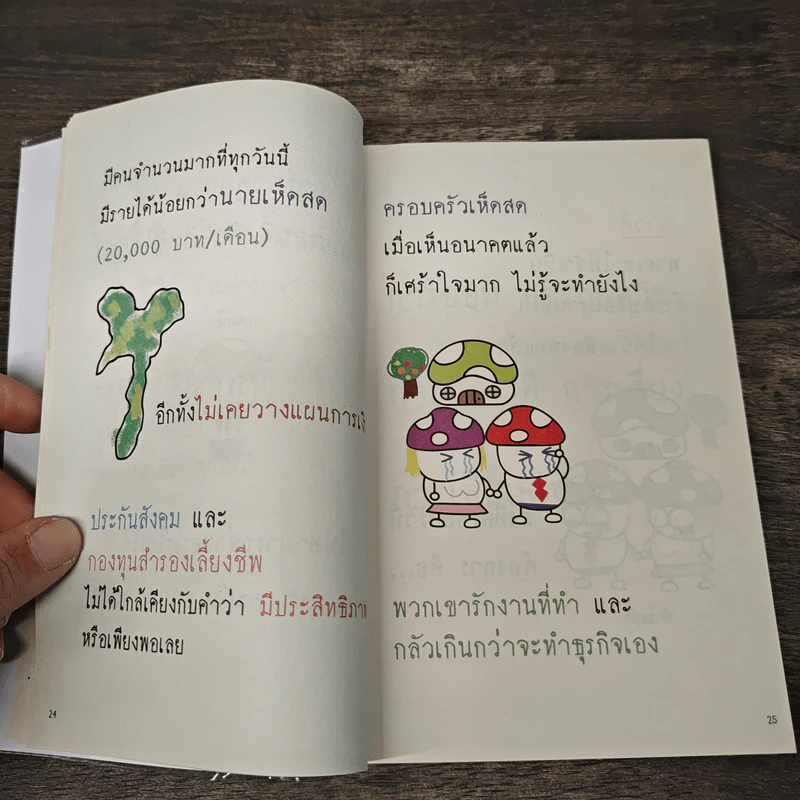 มีคนจำนวนมากที่ทุกวันนี้
มีรายได้น้อยกว่านายเห็ดสด
(20,000 บาท/เดือน)
อีกทั้งไม่เคยวางแผนการเ
ประกันสังคม และ
กองทุนสำรองเลี้ยงชีพ
ไม่ได้ใกล้เคียงกับคำว่า มีประสิทธิภา
หรือเพียงพอเลย
24
ครอบครัวเห็ดสด
เมื่อเห็นอนาคตแล้ว
ก็เศร้าใจมาก ไม่รู้จะทำยังไง
พวกเขารักงานที่ทำ และ
กลัวเกินกว่าจะทำธุรกิจเอง
25